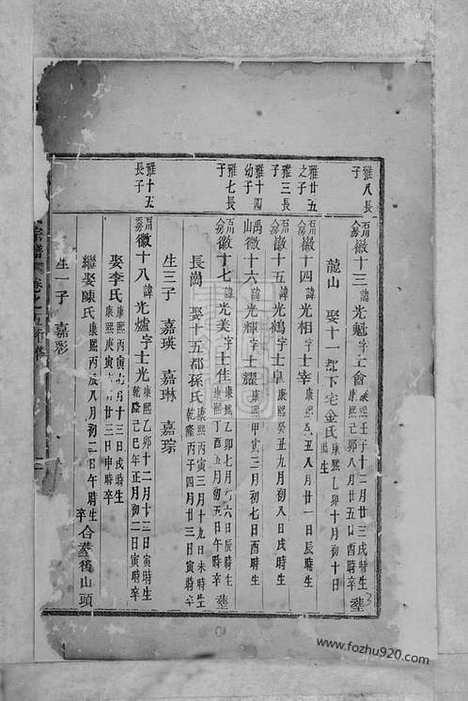 雅八長子
徽十三 諱光魁字士會 康熙壬子十二月廿三戌時生 康熙己卯八月廿五日酉時卒 塟
龍山 娶十一都下宅金氏 康熙乙卯十月初十日 時生
雅廿五之子
徽十四 諱光相字士宰 康熙 丑八月廿一日辰時生
雅三長子
徽十五 諱光鶴字士皐 康熙癸丑九月初八日戌時生
雅十四幼子
禹徽十六 諱光輝字士耀 康熙甲寅三月初七日酉時生
雅七長子
徽十七 諱光美字士佳 康熙乙卯七月 六日辰時生 丁酉五月初五日午時卒 塟
長崗 娶十五都孫氏 康熙丙寅三月十九日未時生 乾隆丙子四月廿三日寅時卒
生三子 嘉瑛 嘉琳 嘉琮
雅十五長子
徽十八 諱光爐字士光 康熙乙卯十二月十三日寅時生 乾隆己巳年正月初二日寅時卒
娶李氏 康熙丙寅七月十三日戌時生 康熙庚寅 月廿三日申時卒
繼娶陳氏 康熙丙辰八月初二日午時生 卒 合塟後山頭
生一子 嘉彩
宗譜 卷之
3
www.fozhu920.com